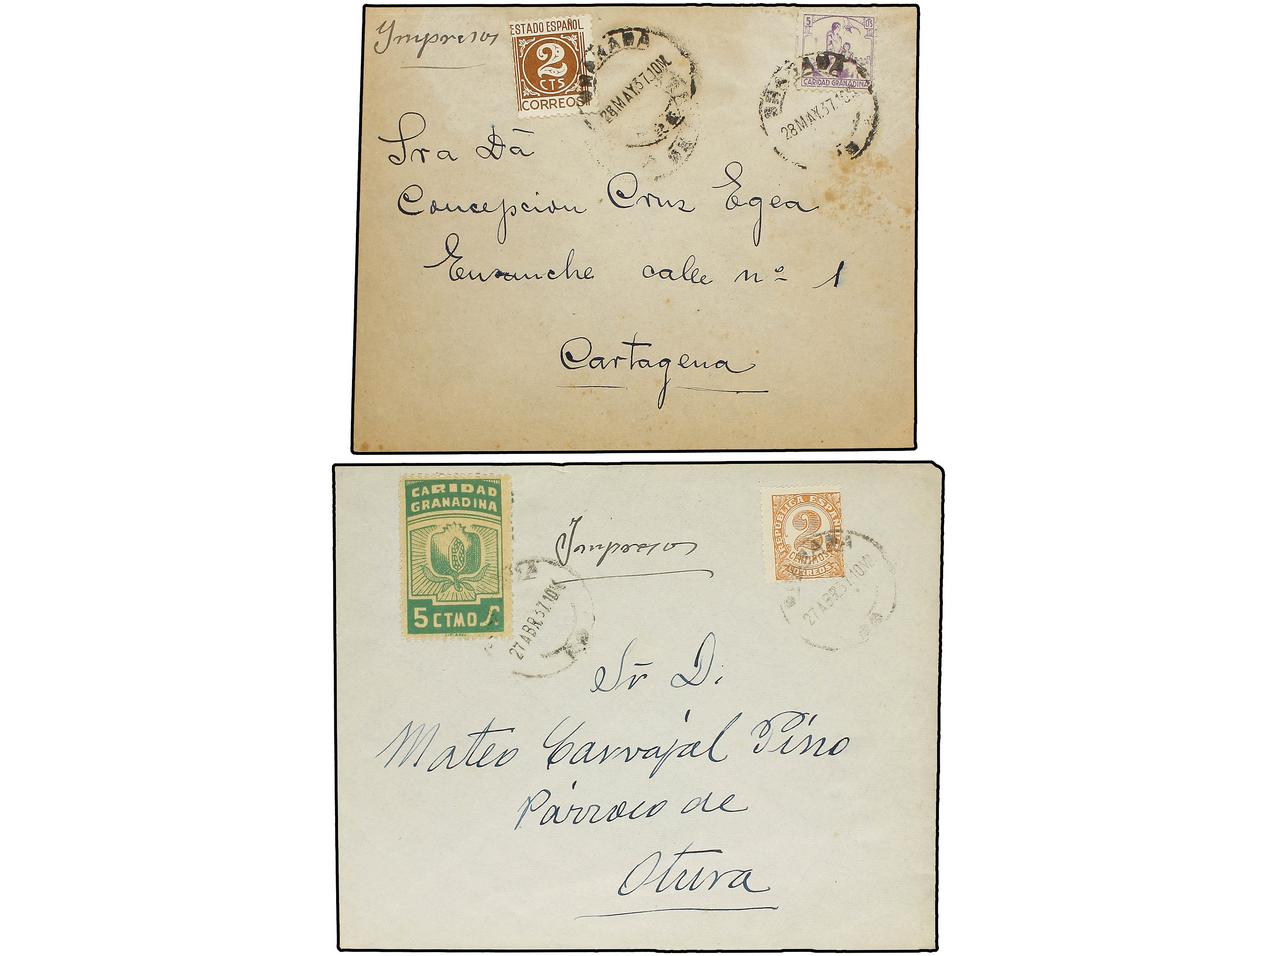 Impresos
ESTADO ESPAÑOL
2
CTS
CORREOS
GRANADA
28 MAY.37.10M.
5 CTS
CARIDAD GRANADINA
GRANADA
28 MAY.37.10M
Sra Dª
Concepcion Cruz Egea
Ensanche calle nº 1
Cartagena
CARIDAD
GRANADINA
5 CTMOS
27 ABR.37.10M
Impresos
REPUBLICA ESPAÑOLA
2
CENTIMOS
CORREOS
27 ABR.37.10M
Sr D.
Mateo Carvajal Pino
Párroco de
Otura